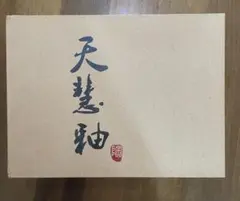 天慧釉